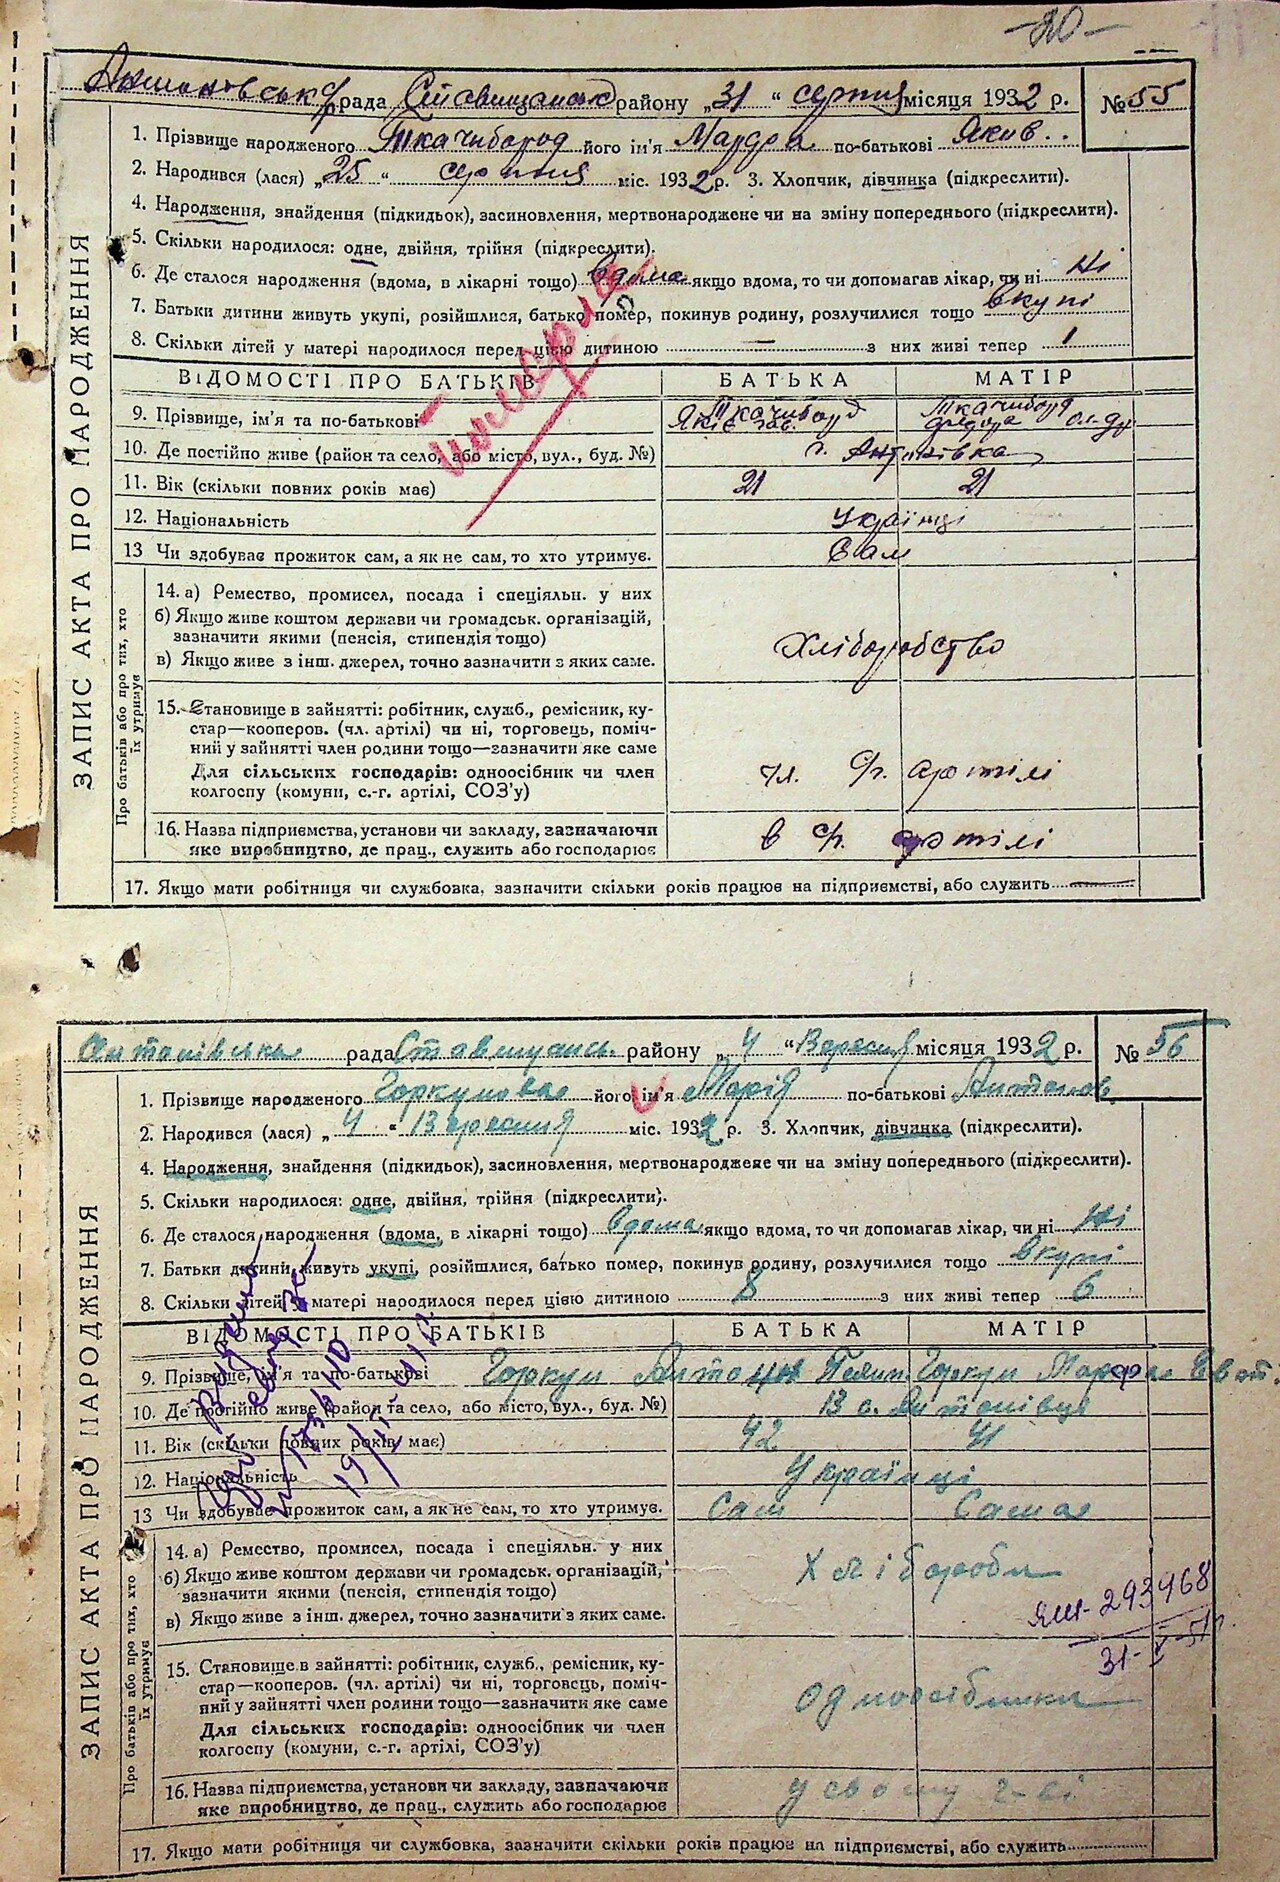 -20-
рада Ставищанськ району „31“ серпня місяця 1932 р. №55
ЗАПИС АКТА ПРО НАРОДЖЕННЯ
1. Прізвище народженого Ткачибород його ім'я Марфа по-батькові Яків..
2. Народився (лася) „25“ серпня міс. 1932 р. 3. Хлопчик, дівчинка (підкреслити).
4. Народження, знайдення (підкидьок), засиновлення, мертвонароджене чи на зміну попереднього (підкреслити).
5. Скільки народилося: одне, двійня, трійня (підкреслити).
6. Де сталося народження (вдома, в лікарні тощо) вдома якщо вдома, то чи допомагав лікар, чи ні Ні
7. Батьки дитини живуть укупі, розійшлися, батько помер, покинув родину, розлучилися тощо вкупі
8. Скільки дітей у матері народилося перед цією дитиною — з них живі тепер 1
померла
ВІДОМОСТІ ПРО БАТЬКІВ БАТЬКА МАТІР
9. Прізвище, ім'я та по-батькові Ткачиборд Ткачиборд
10. Де постійно живе (район та село, або місто, вул., буд. №) с. Антонівка
11. Вік (скільки повних років має) 21 21
12. Національність Українці
13 Чи здобуває прожиток сам, а як не сам, то хто утримує. Сам
Про батьків або про тих, хто їх утримує
14. а) Ремество, промисел, посада і спеціяльн. у них
б) Якщо живе коштом держави чи громадськ. організацій,
зазначити якими (пенсія, стипендія тощо)
Хліборобство
в) Якщо живе з інш. джерел, точно зазначити з яких саме.
15. Становище в зайнятті: робітник, служб., ремісник, ку-
стар—кооперов. (чл. артілі) чи ні, торговець, поміч-
ний у зайнятті член родини тощо—зазначити яке саме
Для сільських господарів: одноосібник чи член
колгоспу (комуни, с.-г. артілі, СОЗ'у)
чл. с/г. артілі
16. Назва підприємства, установи чи закладу, зазначаючи
яке виробництво, де прац., служить або господарює
в с/г. артілі
17. Якщо мати робітниця чи службовка, зазначити скільки років працює на підприємстві, або служить —
Антонівська рада Ставищанс. району „4“ Вересня місяця 1932 р. № 56
ЗАПИС АКТА ПРО НАРОДЖЕННЯ
1. Прізвище народженого Горкунова його ім'я Марія по-батькові Антонов.
2. Народився (лася) „4“ Вересня міс. 1932 р. 3. Хлопчик, дівчинка (підкреслити).
4. Народження, знайдення (підкидьок), засиновлення, мертвонароджене чи на зміну попереднього (підкреслити).
5. Скільки народилося: одне, двійня, трійня (підкреслити).
6. Де сталося народження (вдома, в лікарні тощо) вдома якщо вдома, то чи допомагав лікар, чи ні Ні
7. Батьки дитини живуть укупі, розійшлися, батько помер, покинув родину, розлучилися тощо вкупі
8. Скільки дітей у матері народилося перед цією дитиною 8 з них живі тепер 6
ВІДОМОСТІ ПРО БАТЬКІВ БАТЬКА МАТІР
9. Прізвище, ім'я та по-батькові Горкун Антон Горкун
10. Де постійно живе (район та село, або місто, вул., буд. №) В с. Антонівця
11. Вік (скільки повних років має) 42 41
12. Національність Українці
13 Чи здобуває прожиток сам, а як не сам, то хто утримує. Сам Сама
Про батьків або про тих, хто їх утримує
14. а) Ремество, промисел, посада і спеціяльн. у них
б) Якщо живе коштом держави чи громадськ. організацій,
зазначити якими (пенсія, стипендія тощо)
Хлібороби
в) Якщо живе з інш. джерел, точно зазначити з яких саме.
293468
15. Становище в зайнятті: робітник, служб., ремісник, ку-
стар—кооперов. (чл. артілі) чи ні, торговець, поміч-
ний у зайнятті член родини тощо—зазначити яке саме
Для сільських господарів: одноосібник чи член
колгоспу (комуни, с.-г. артілі, СОЗ'у)
одноосібники
16. Назва підприємства, установи чи закладу, зазначаючи
яке виробництво, де прац., служить або господарює
у свому г-ві
17. Якщо мати робітниця чи службовка, зазначити скільки років працює на підприємстві, або служить